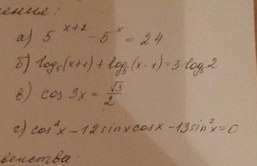 а) 5^(x+2) - 5^x = 24
б) log₂(x+1) + log₂(x-1) = 3 log₂ 2
в) cos 3x = √3/2
с) cos²x - 12 sin x cos x - 13 sin²x = 0